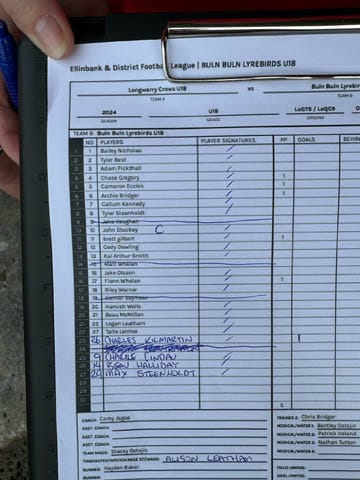 Ellinbank & District Football League | BULN BULN LYREBIRDS U18
Longwarry Crows U18 vs Buln Buln Lyrebir
TEAM A TEAM B
2024 U18 LoGTS / LoGC9
SEASON GRADE GROUND
TEAM B: Buln Buln Lyrebirds U18
NO PLAYERS PLAYER SIGNATURES PP GOALS BEHIN
1 Bailey Nicholas
2 Tyler Best
3 Adam Pickthall
4 Chase Gregory 1
5 Cameron Eccles 1
6 Archie Bridger 1
7 Callum Kennedy
8 Tyler Steenholdt
9 Jake Vaughan
10 John Stuckey C
11 brett gilbert 1
12 Cody Dowling
13 Kai Arthur-Smith
14 Matt Whelan
15 Jake Olsson
16 Fionn Whelan 1
17 Riley Warner
18 Connor Seymour
19 Hamish Wells
20 Beau McMillan
21 Logan Leatham
22 Taite Lennox
26 CHARLES KILMARTIN 1
9 CHARLIE LINDAN
14 BEAU HALLIDAY
29 MAX STEENHOLDT
5
COACH: Corey Jagoe TRAINER 2: Chris Bridger
ASST. COACH: MEDICAL/WATER 1: Bentley Ostojic
ASST. COACH: MEDICAL/WATER 2: Patrick Ireland
ASST. COACH: MEDICAL/WATER 3: Nathan Tutton
TEAM MNGR: Stacey Ostojic
TIMEKEEPER/INTERCHANGE STEWARD: ALISON LEATHAM
RUNNER: Hayden Baker FIELD UMPIRE:
RUNNER: GOAL UMPIRE: